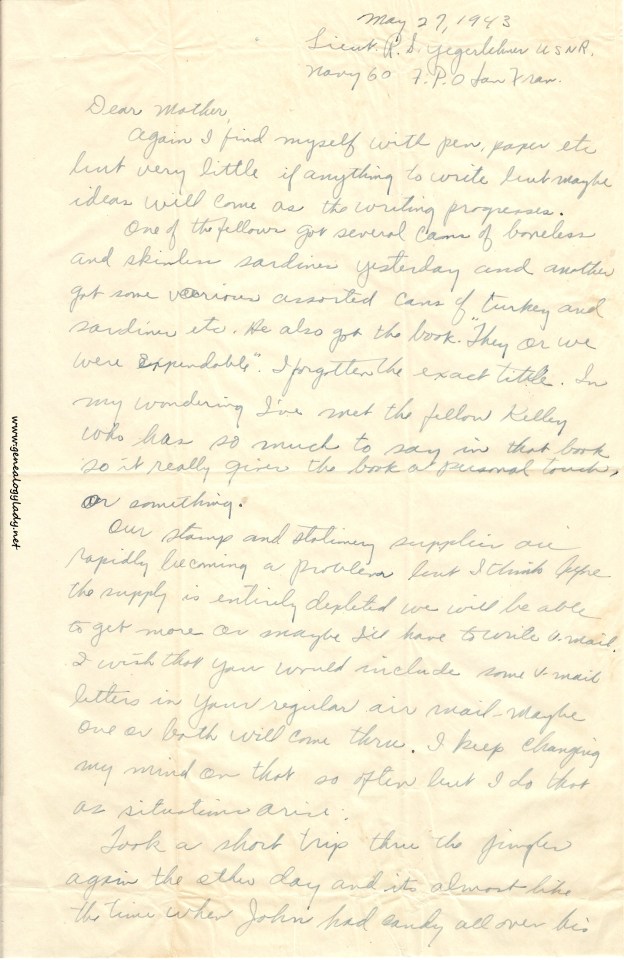 May 27, 1943
Lieut. R. I. Yegerlehner USNR.
Navy 60 F.P.O San Fran.
Dear Mother,
Again I find myself with pen, paper etc
but very little if anything to write but maybe
ideas will come as the writing progresses.
One of the fellows got several cans of boneless
and skinless sardines yesterday and another
got some various assorted cans of turkey and
sardines etc. He also got the book. "They or we
were Expendable". I forgotten the exact tittle. In
my wondering I've met the fellow Kelley
who has so much to say in that book
so it really gives the book a personal touch,
or something.
Our stamp and stationery supplies are
rapidly becoming a problem but I think before
the supply is entirely depleted we will be able
to get more or maybe I'll have to write V-mail.
I wish that you would include some V-mail
letters in your regular air mail - maybe
one or both will come thru. I keep changing
my mind on that so often but I do that
as situations arise.
Took a short trip thru the jungles
again the other day and its almost like
the time when John had candy all over his
www.genealogylady.net